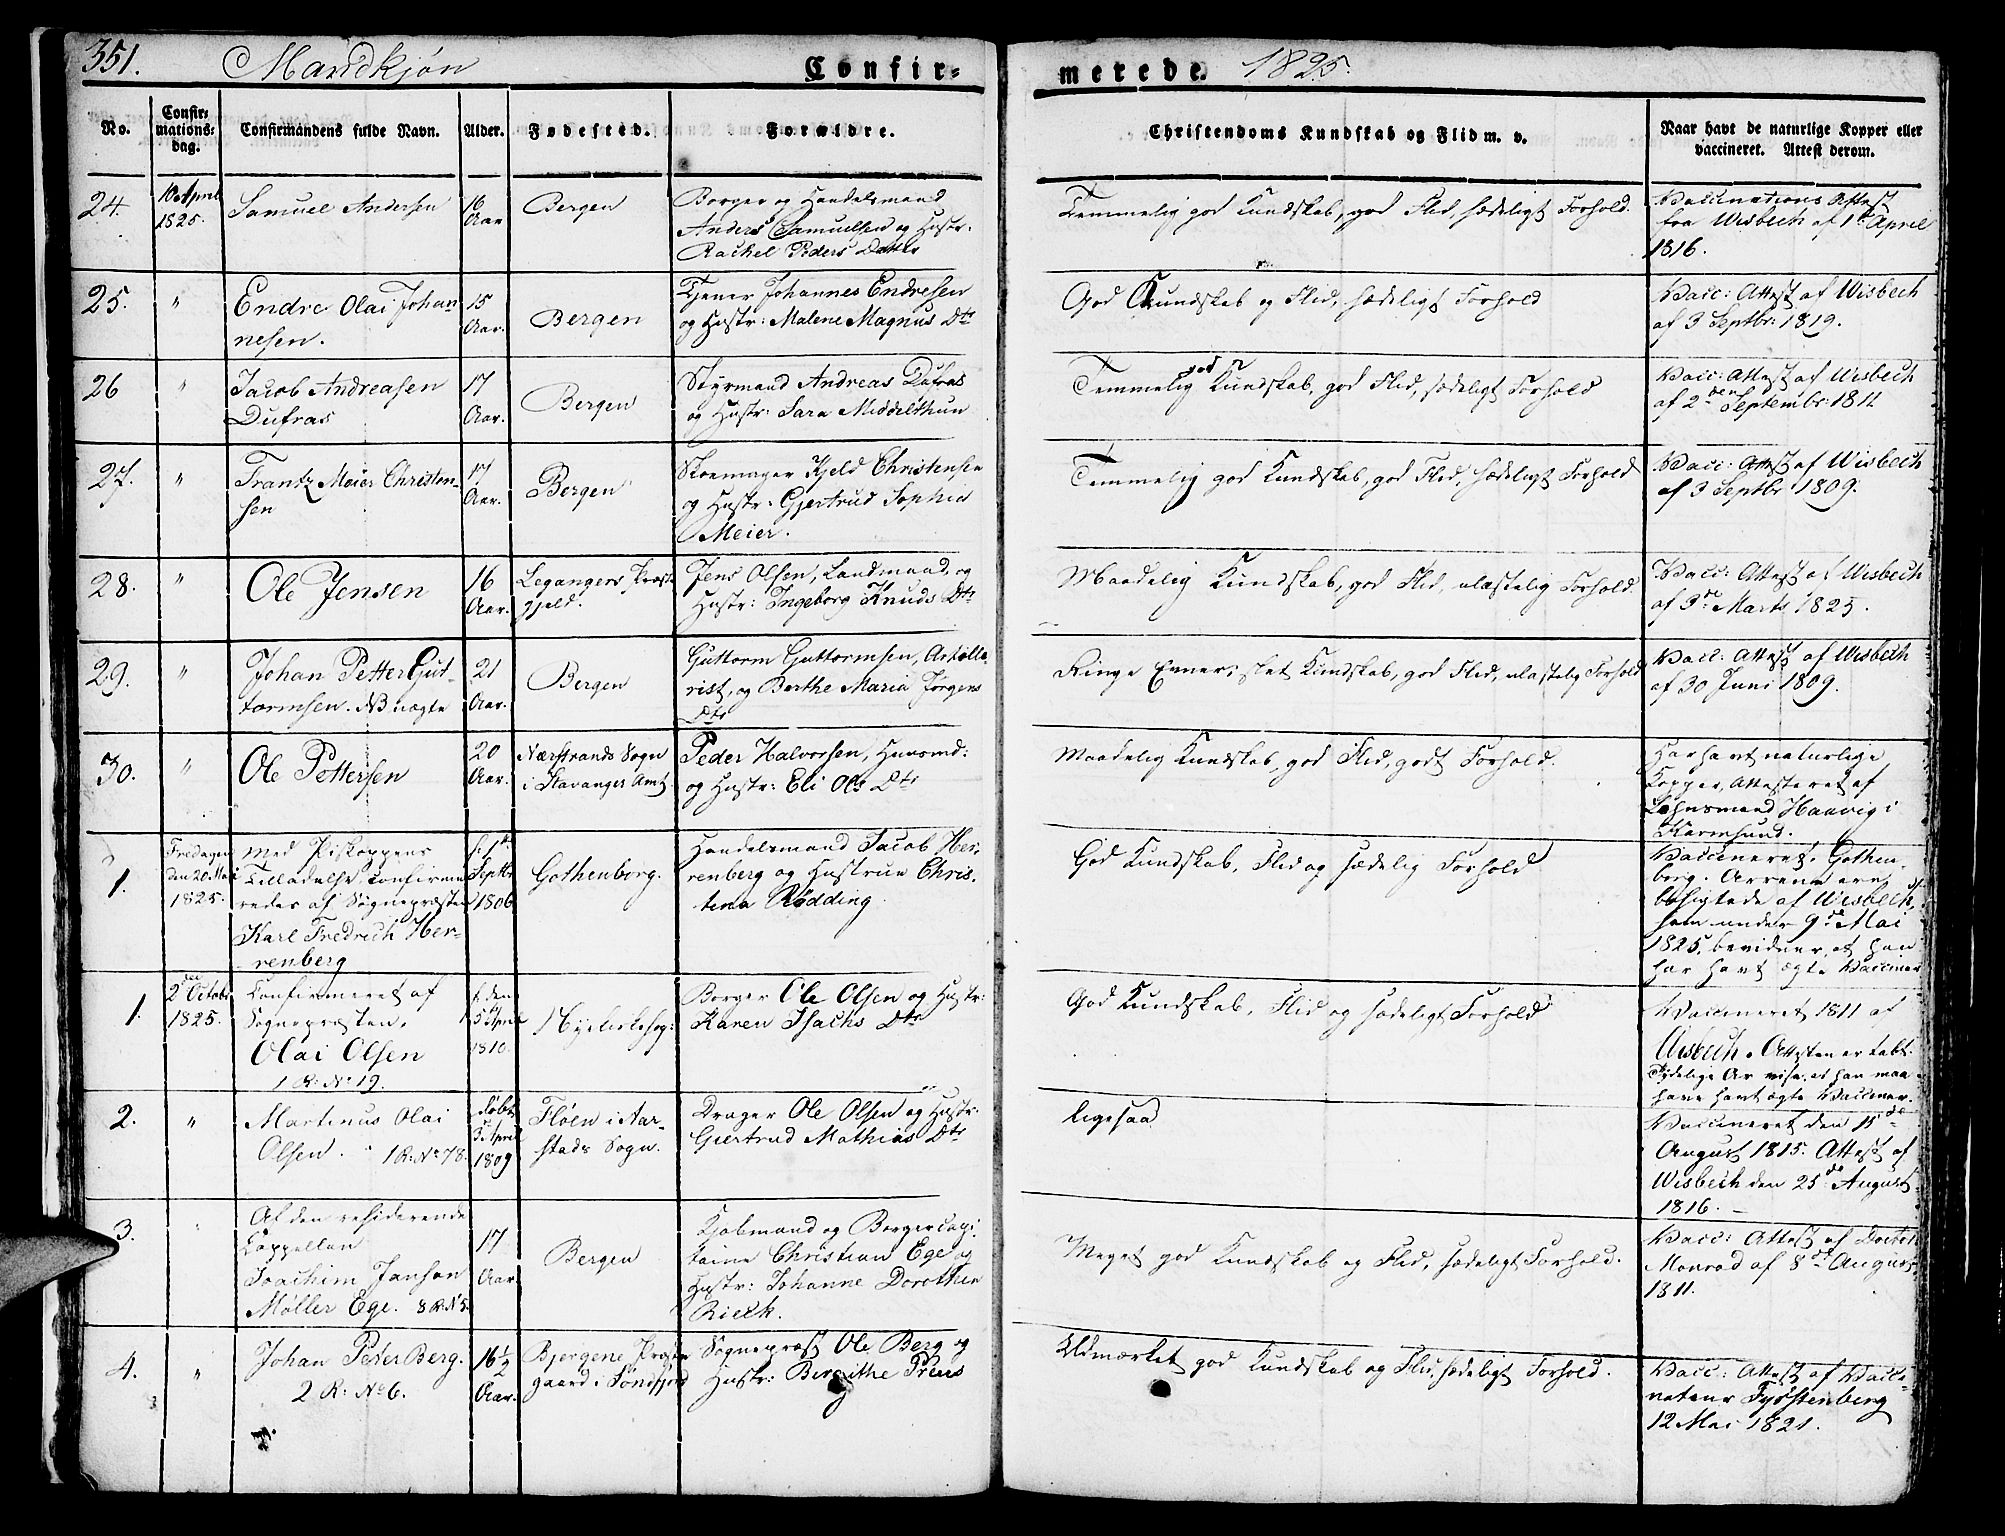 351. Mandkjøn Confir-
merede. 1825.
No.
Confir-
mations-
dag.
Confirmandens fulde Navn.
Alder.
Fødested.
Forældre.
Christendoms Kundskab og Flid m. v.
Naar havt de naturlige Kopper eller
vaccineret. Attest derom.
24.
10 April
1825.
Samuel Andersen
16
Aar
Bergen
Borger og Handelsmand
Anders Samuelsen og Hustr:
Rachel Peders Datter
Temmelig god Kundskab, god Flid, sædeligt Forhold.
Vaccinations Attest
fra Wisbech af 1ste April
1816.
25.
"
Endre Olai Johan
nesen.
15
Aar.
Bergen
Tjener Johannes Endresen
og Hustr: Malene Magnus Dtr
God Kundskab og Flid, sædeligt Forhold
Vacc: Attest af Wisbech
af 3 Septbr: 1819.
26
"
Jacob Andreasen
Dufras
17
Aar.
Bergen
Styrmand Andreas Dufras
og Hustr: Sara Middelthun
Temmelig god Kundskab, god Flid, sædeligt Forhold
Vacc: Attest af Wisbech
af 2den Septembr: 1811
27.
"
Frantz Meier Christen-
sen
17
Aar.
Bergen
Skoemager Kjeld Christensen
og Hustr: Gjertrud Sophia
Meier.
Temmelig god Kundskab, god Flid, sædeligt Forhold
Vacc: Attest af Wisbech
af 3 Septbr 1809.
28.
"
Ole Jensen
16
Aar.
Leganger Præste
gjeld.
Jens Olsen, Landmand, og
Hustr: Ingeborg Knuds Dtr
Maadelig Kundskab, god Flid, ulastelig Forhold.
Vacc: Attest af Wisbech
af 9de Marts 1825.
29.
"
Johan Petter Gut-
tormsen. NB nægte
21
Aar.
Bergen
Guttorm Guttormsen, Artille-
rist, og Berthe Maria Jørgens
Dtr
Ringe Evner, slet Kundskab, god Flid, ulastelig Forhold
Vacc: Attest af Wisbech
af 30 Juni 1809.
30.
"
Ole Pettersen
20
Aar.
Nærstrands Sogn
i Stavanger Amt.
Peder Halvorsen, Huusmd:
og Hustr: Eli Ols Dtr
Maadelig Kundskab, god Flid, godt Forhold.
Har havt naturlige
Kopper, Attesteret af
Lehnsmand Haavig i
Karmsund.
1.
Fredagen
den 20 Mai
1825.
Med Biskoppens
Tilladelse, confirme-
redes af Sognepræsten
Karl Fredrich Her-
renberg
f. 1ste
Septbr
1806
Gothenborg.
Handelsmand Jacob Her-
renberg og Hustrue Chris-
tena Rødding
God Kundskab, Flid og sædelig Forhold
Vaccineret i Gothen-
borg. Arrene ere
besigtede af Wisbech,
som under 9de Mai
1825, bevidner, at han
har havt ægte Vacciner
1.
2den Octobr
1825.
Confirmeret af
Sognepræsten.
Olai Olsen
1 R: No 19.
f. den
5 April
1810.
Nyekirkesog:
Borger Ole Olsen og Hustr:
Karen Isachs Dtr
God Kundskab, Flid og sædeligt Forhold
Vaccineret 1811 af
Wisbech. Attesten er tabt.
Tydelige Ar vise, at han maa
have havt ægte Vacciner.
2.
"
Martinus Olai
Olsen. 1 R: No 78.
døbt
3 April
1809
Fløen i Aar-
stads Sogn.
Drager Ole Olsen og Hustr:
Giertrud Mathias Dtr
ligesaa
Vaccineret den 15de
August 1815. Attest af
Wisbech den 25de August
1816.
3.
"
Af den residerende
Cappellan
Joachim Janson
Møller Ege. 8 R: No 5.
17
Aar.
Bergen
Kjøbmand og Borgercapi-
taine Christian Ege og
Hustr: Johanne Dorothea
Rieck.
Meget god Kundskab og Flid, sædeligt Forhold.
Vacc: Attest af Doctor
Monrad af 8de August
1811.
4.
"
Johan Peter Berg.
2 R: No 6.
16½
Aar.
Bjergene Præste
gaard i Søndfjord
Sognepræst Ole Berg og
Hustr: Bergithe Preus
Udmærket god Kundskab og Flid, sædeligt Forhold.
Vacc: Attest af Vacci-
nateur Fyrstenberg
12 Mai 1821.